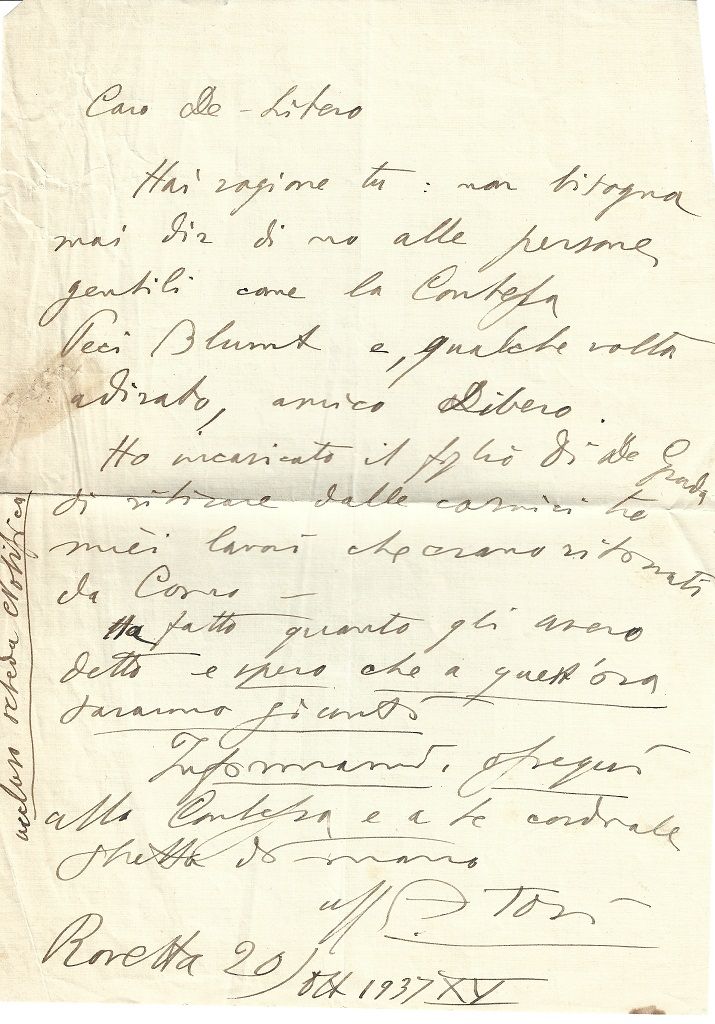 Caro De-Libero
Hai ragione tu: non bisogna
mai dir di no alle persone
gentili come la Contessa
Peci Blunt e, qualche volta
adirato, amico Libero.
Ho incaricato il figlio di De Grada
di ritirare dalle cornici tre
miei lavori che erano ritornati
da Como —
Ha fatto quanto gli avevo
detto e spero che a quest'ora
saranno giunti
Informami, ossequi
alla Contessa e a te cordiale
stretta di mano
aff A Tosi
Rovetta 20/Ott 1937 XV
accluso scheda Notifica